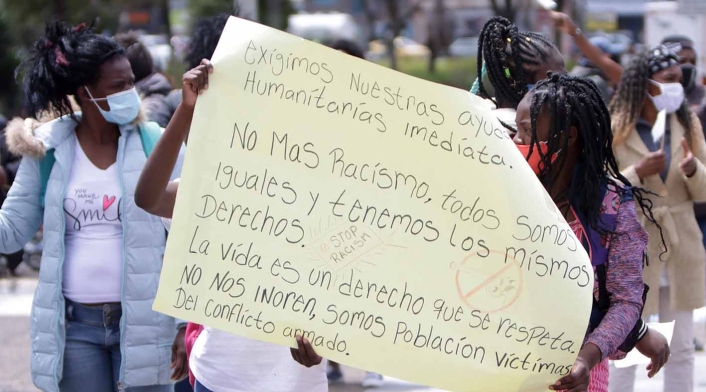 exigimos Nuestras ayu
Humanitarías immediata.
NO Mas Racismo, todos Somos
iguales y tenemos los mismos
Derechos.
STOP
RACISM
La vida es un derecho que se respeta.
NO NOS INOREN, somos Población Víctimas
Del conflicto armado.
YOU
MAKE ME
Smile